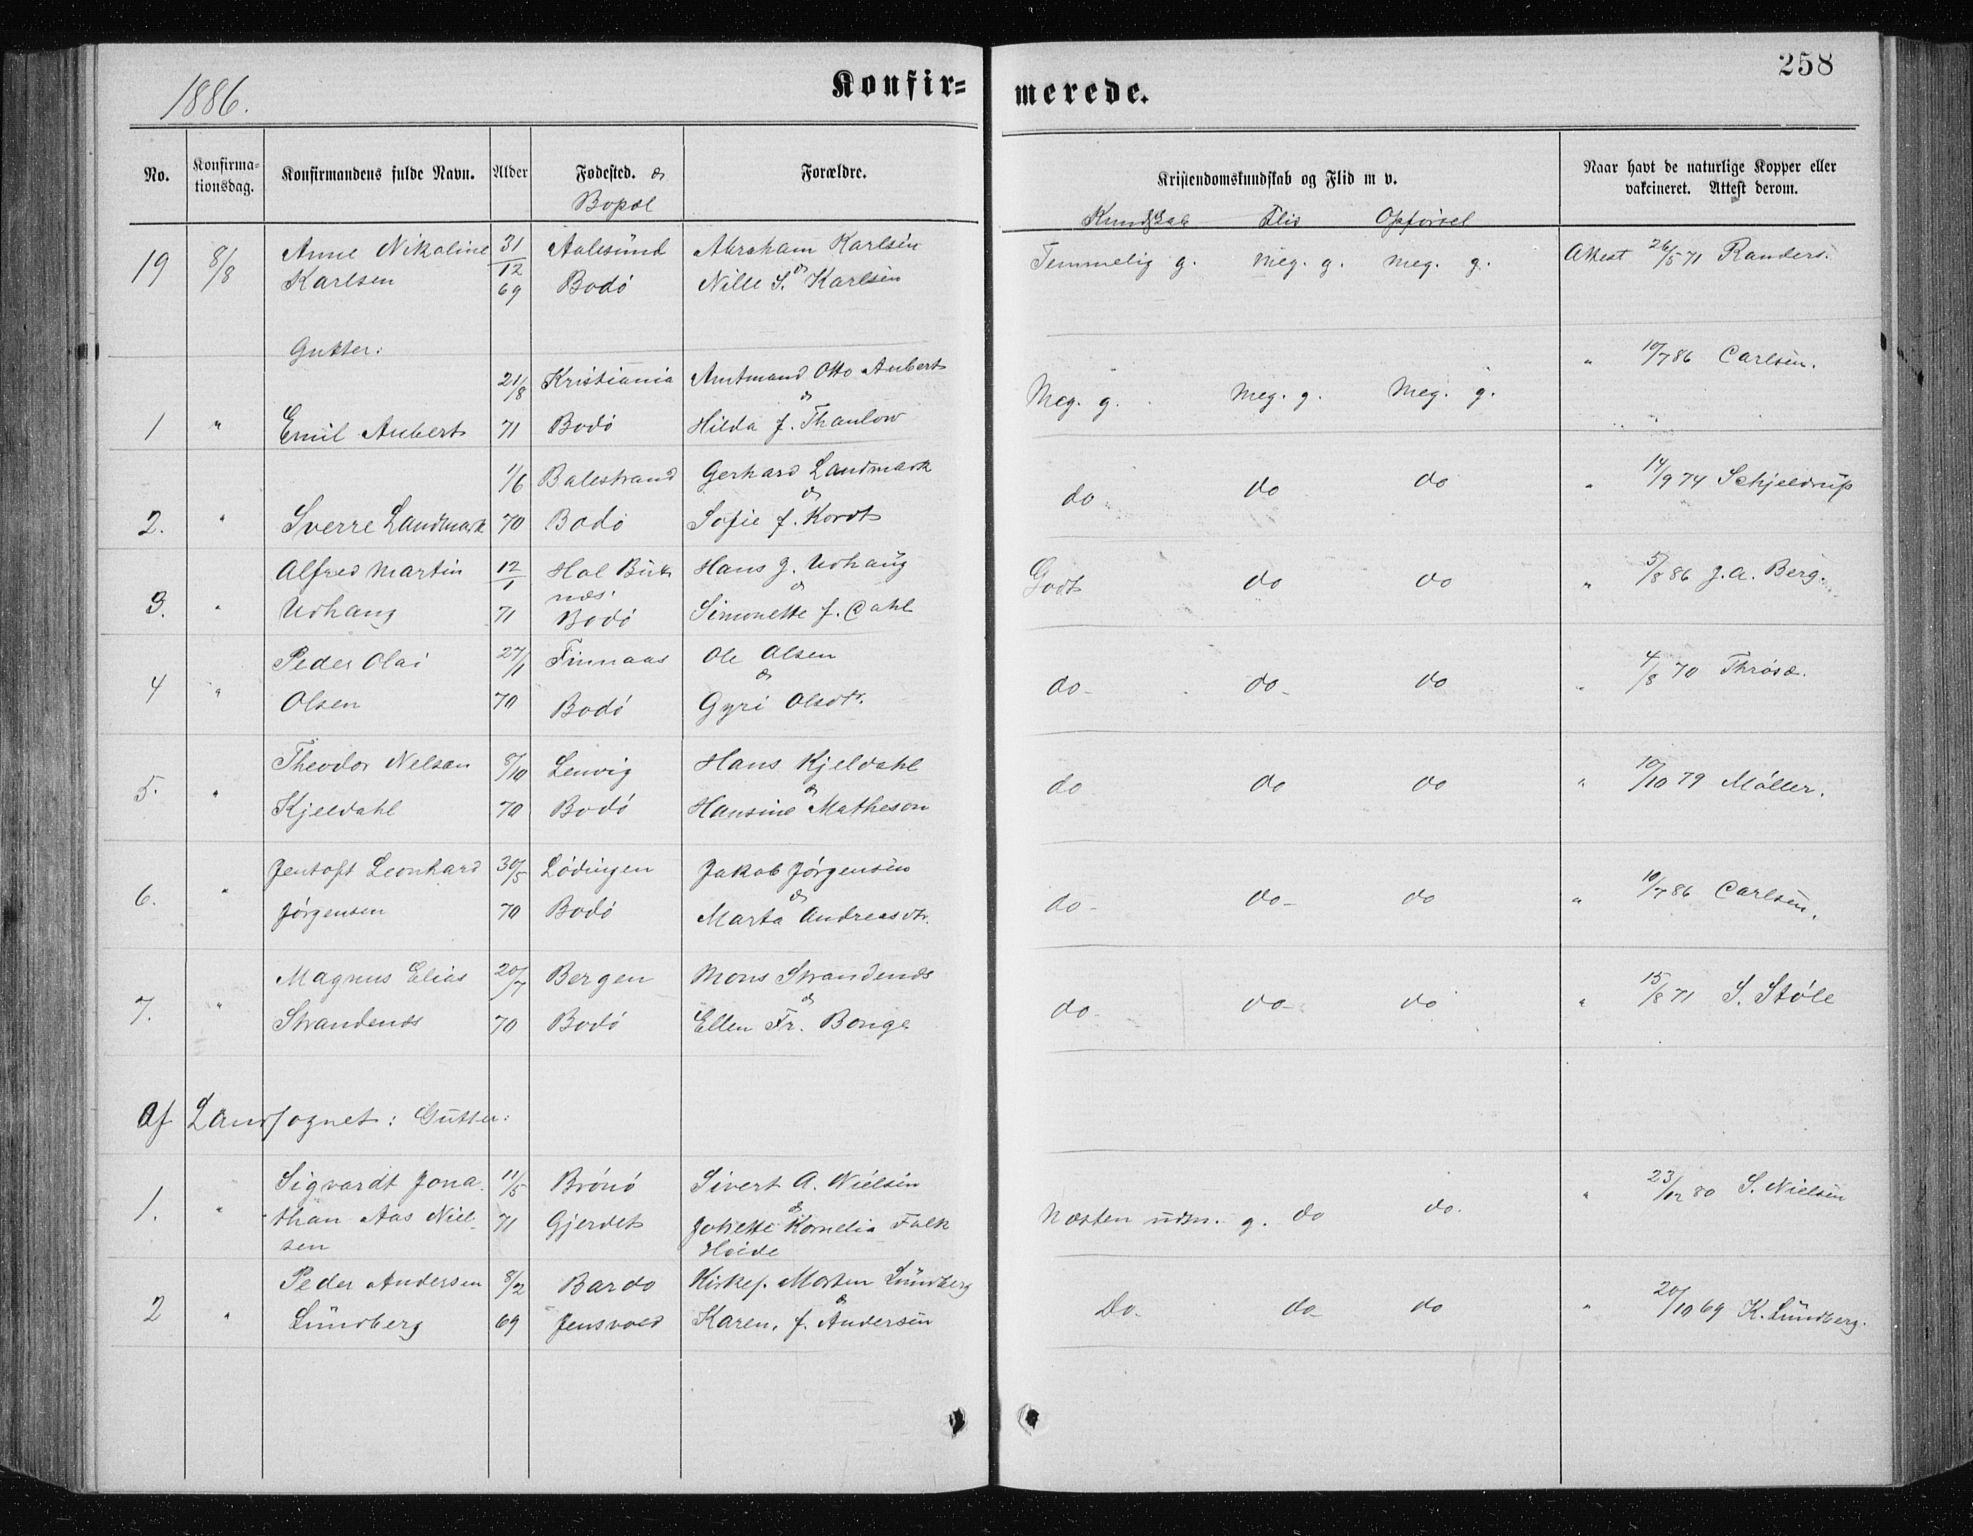 1886.
Konfir=
merede.
258
No.
Konfirma-
tionsdag.
Konfirmandens fulde Navn.
Alder
Fødested. &
Bopæl
Forældre.
Kristendomskundskab og Flid m v.
Kundskab Flid Opførsel
Naar havt de naturlige Kopper eller
vakcineret. Attest derom.
19 8/8 Anne Nikoline 31/12 Aalesund Abraham Karlsen
Karlsen 69 Bodö Nille S. & Karlsen
Temmelig g. Meg. g. Meg. g. Attest 26/5 71 Randers.
Gutter:
21/8 Kristiania Amtmand Otto Aubert
1 " Emil Aubert 71 Bodö & Hilda f. Thaulow
Meg. g. Meg. g. Meg. g. " 10/7 86 Carlsen.
1/6 Balestrand Gerhard Landmark
2. " Sverre Landmark 70 Bodö & Sofie f. Kordt
do do do " 14/9 74 Schjeldrup
Alfred Martin 12/1 Hol Buk Hans J. Udhaug
næs.
3. " Udhaug 71 Bodö & Simonette f. Dahl
Godt do do " 5/8 86 J. A. Berg.
Peder Olai 27/1 Finnaas Ole Olsen
4 " Olsen 70 Bodö & Gyri Olsdtr.
do do do " 4/8 70
Theodor Nelsan 8/10 Lenvig Hans Kjeldahl
5. " Kjeldahl 70 Bodö & Hansine Matheson
do do do " 10/10 79 Møller.
Jentoft Leonhard 30/5 Lødingen Jakob Jørgensen
6. " Jørgensen 70 Bodö & Marta Andreasdtr.
do do do " 10/7 86 Carlsen.
Magnus Elias 20/7 Bergen Mons Strandenæs
7. " Strandenæs 70 Bodö & Ellen Fr. Bonge
do do do " 15/8 71 S. Støle
Af Landsognet: Gutter:
Sigvardt Jona- 11/5 Brönö Sivert A. Nielsen
1. " than Aas Niel- 71 Gjerdet & Kornelia Falk
sen Hoide
Næsten udm. g. do do " 23/12 80 S. Nielsen
Peder Andersen 8/2 Bardo Kirkes. Morten Lundberg
2 " Lundberg 69 Jensvold Karen, f. & Andersen
Do do do " 20/10 69 K. Lundberg.